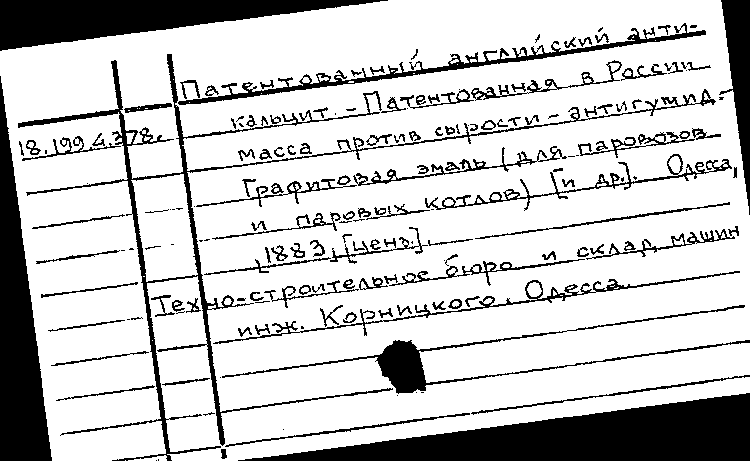 Патентованный английский анти-
кальцит. - Патентованная в России
18.199.4.378.
масса против сырости - антигумид. -
Графитовая эмаль (для паровозов
и паровых котлов) [и др.]. Одесса,
1883, [ценз.].
Техно-строительное бюро и склад машин
инж. Корницкого. Одесса.